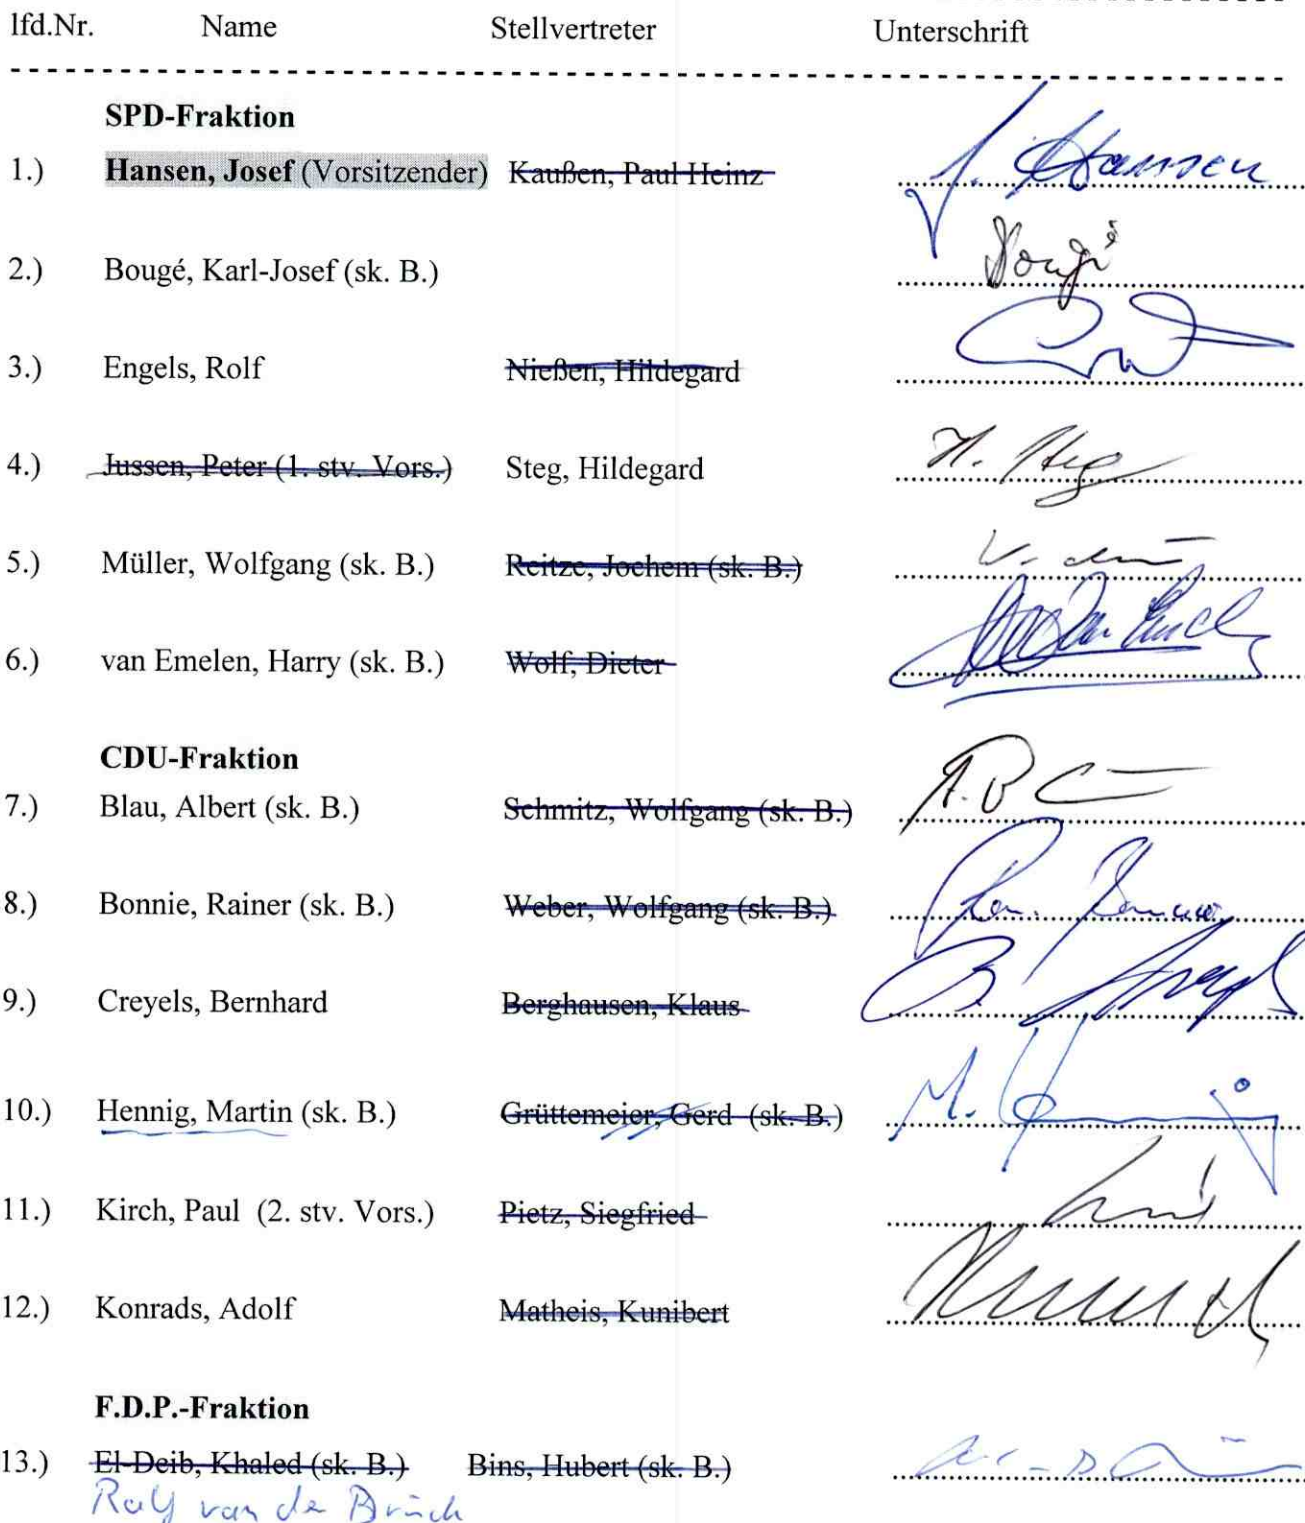 lfd.Nr. Name Stellvertreter Unterschrift
SPD-Fraktion
1.) Hansen, Josef (Vorsitzender) Kaußen, Paul Heinz J. Hansen
2.) Bougé, Karl-Josef (sk. B.) Bougé
3.) Engels, Rolf Nießen, Hildegard
4.) Jussen, Peter (1. stv. Vors.) Steg, Hildegard H. Steg
5.) Müller, Wolfgang (sk. B.) Reitze, Jochem (sk. B.)
6.) van Emelen, Harry (sk. B.) Wolf, Dieter
CDU-Fraktion
7.) Blau, Albert (sk. B.) Schmitz, Wolfgang (sk. B.)
8.) Bonnie, Rainer (sk. B.) Weber, Wolfgang (sk. B.)
9.) Creyels, Bernhard Berghausen, Klaus
10.) Hennig, Martin (sk. B.) Grüttemeier, Gerd (sk. B.)
11.) Kirch, Paul (2. stv. Vors.) Pietz, Siegfried
12.) Konrads, Adolf Matheis, Kunibert
F.D.P.-Fraktion
13.) El-Deib, Khaled (sk. B.) Bins, Hubert (sk. B.)
Ralf van de Brück